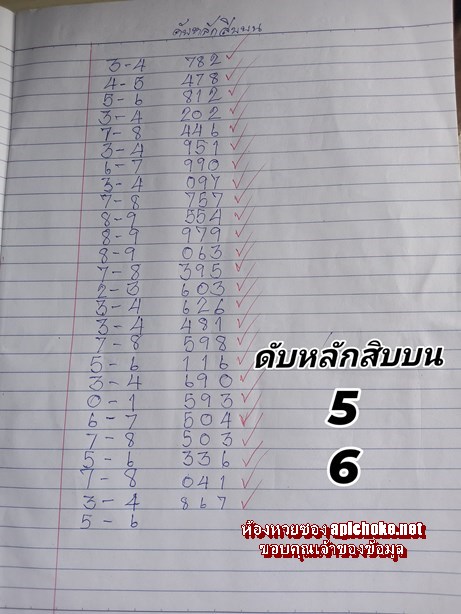 ดับหลักสิบบน
3-4 782
4-5 478
5-6 812
3-4 202
7-8 446
3-4 951
6-7 990
3-4 097
7-8 757
8-9 554
8-9 979
8-9 063
7-8 395
2-3 603
3-4 626
3-4 481
7-8 598
5-6 116
3-4 690
0-1 593
6-7 504
7-8 503
5-6 336
7-8 041
3-4 867
5-6
ดับหลักสิบบน
5
6
ห้องหวยซอง apichoke.net
ขอบคุณเจ้าของข้อมูล